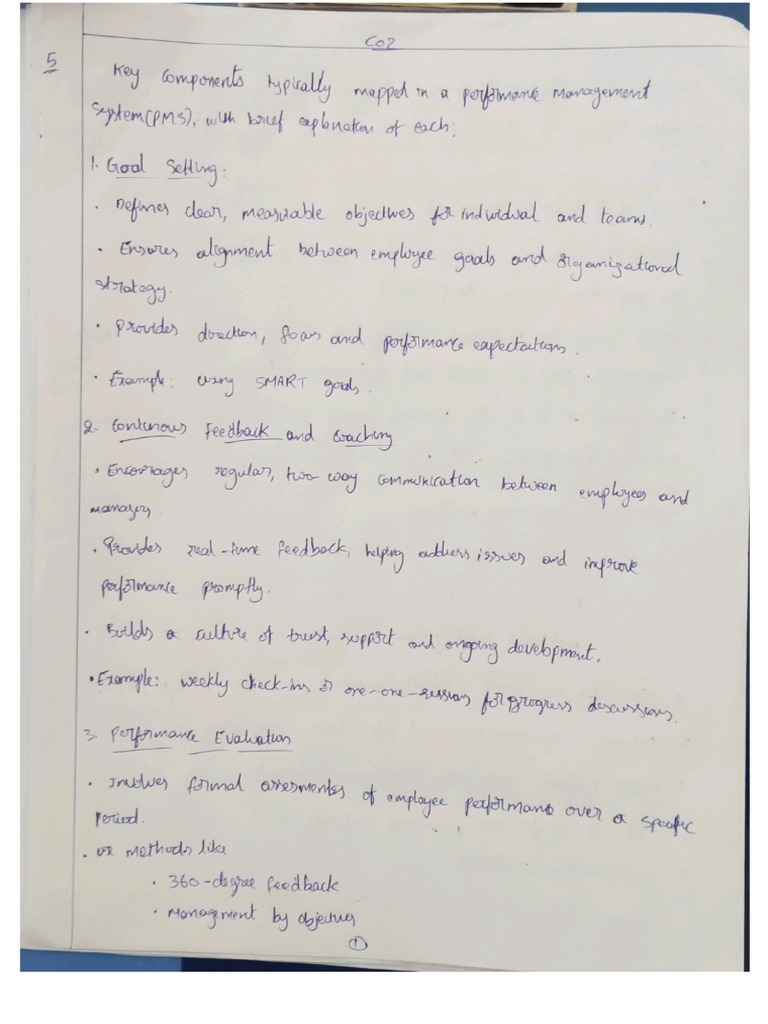 CO2
5
Key Components typically mapped in a performance management
System(PMS), with brief explanation of each;
1. Goal Setting:
• Defines clear, measurable objectives for individual and teams.
• Ensures alignment between employee goals and organizational
strategy.
• Provides direction, focus and performance expectations.
• Example: using SMART goals.
2. Continous Feedback and Coaching
• Encourages regular, two way communication between employees and
managers
• Provides real-time feedback, helping address issues and improve
performance promptly.
• Builds a culture of trust, support and ongoing development.
• Example: weekly check-ins or one-one-sessions for progress discussions.
3. Performance Evaluation
• Involves formal assesmentes of employee performance over a specific
Period.
• use methods like
• 360-degree feedback
• Management by objectives
1